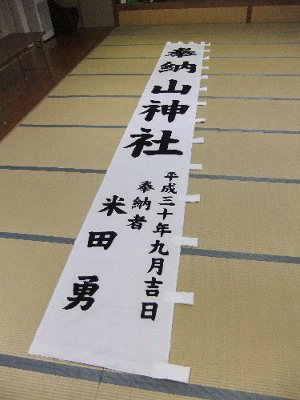 奉納山神社
平成三十年九月吉日
奉納者
米田勇